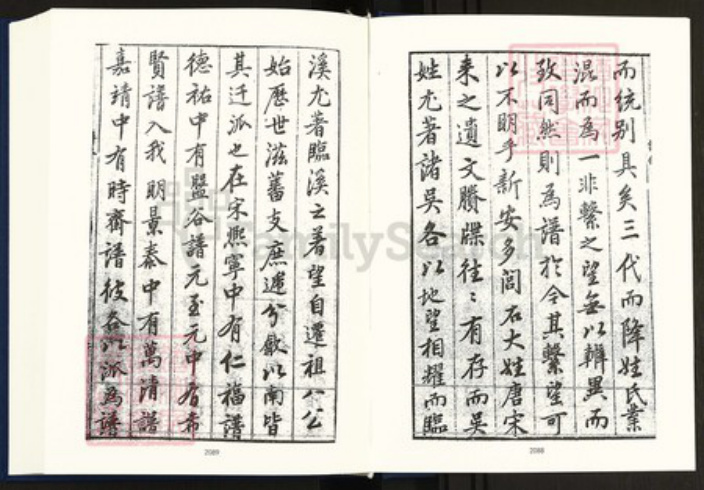 而统别具矣三代而降姓氏業
混而為一非繫之望無以辨異而
致同然則為譜於今其繫望可
以不明乎新安多閥右大姓唐宋
来之遺文賸牒往々有存而吳
姓尤著諸吳各以地望相耀而臨
2088
溪尤著臨溪之著望自遷祖八公
始歷世滋蕃支庶遞分歙以南皆
其迁派也在宋熙寧中有仁福譜
德祐中有盤谷譜元至元中有希
賢譜入我明景泰中有萬清譜
嘉靖中有時齋譜彼各以派為譜
2089
FamilySearch